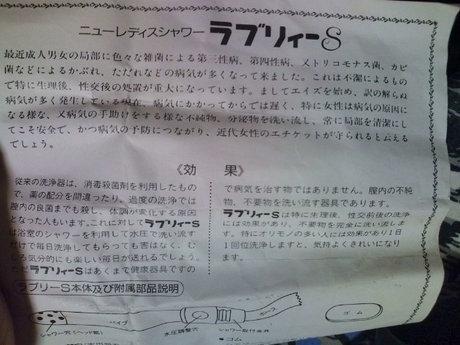 ニューレディスシャワー ラブリィーS
最近成人男女の局部に色々な雑菌による第三性病、第四性病、又トリコモナス菌、カビ
菌などによるかぶれ、ただれなどの病気が多くなって来ました。これは不潔によるもの
で特に生理後、性交後の処置が重大になっています。ましてエイズを始め、訳の解らぬ
病気が多く発生している現在、病気にかかってからでは遅く、特に女性は病気の原因に
なる様な、又病気の手助けをする様な不純物、分泌物を洗い流し、常に局部を清潔にし
てこそ安全で、かつ病気の予防につながり、近代女性のエチケットが守れると云える
でしょう。
《効 果》
従来の洗浄器は、消毒殺菌剤を利用したもの
で、薬の配分を間違ったり、過度の洗浄では
膣内の良菌までも殺し、体調が変化する原因
となった人もいます。これに対してラブリィーS
は浴室のシャワーを利用して水圧で洗い流す
だけで毎日洗浄してもらっても害はなく、む
しろ気分的にも楽しい毎日が送れるでしょう。
ただラブリィーSはあくまで健康器具ですの
で病気を治す物ではありません。膣内の不純
物、不要物を洗い流す器具であります。
ラブリィーSは特に生理後、性交前後の洗浄
には効果があり、不要物を完全に洗い流しま
す。特にオリモノの多い人には効果があり1日
1回位洗浄しますと、気持よくきれいになり
ます。
ラブリーS本体及び附属部品説明
シャワー穴(ヘッド部)
パイプ
水圧調整穴
カバー
シャワー取付金具
ゴム
●ゴム